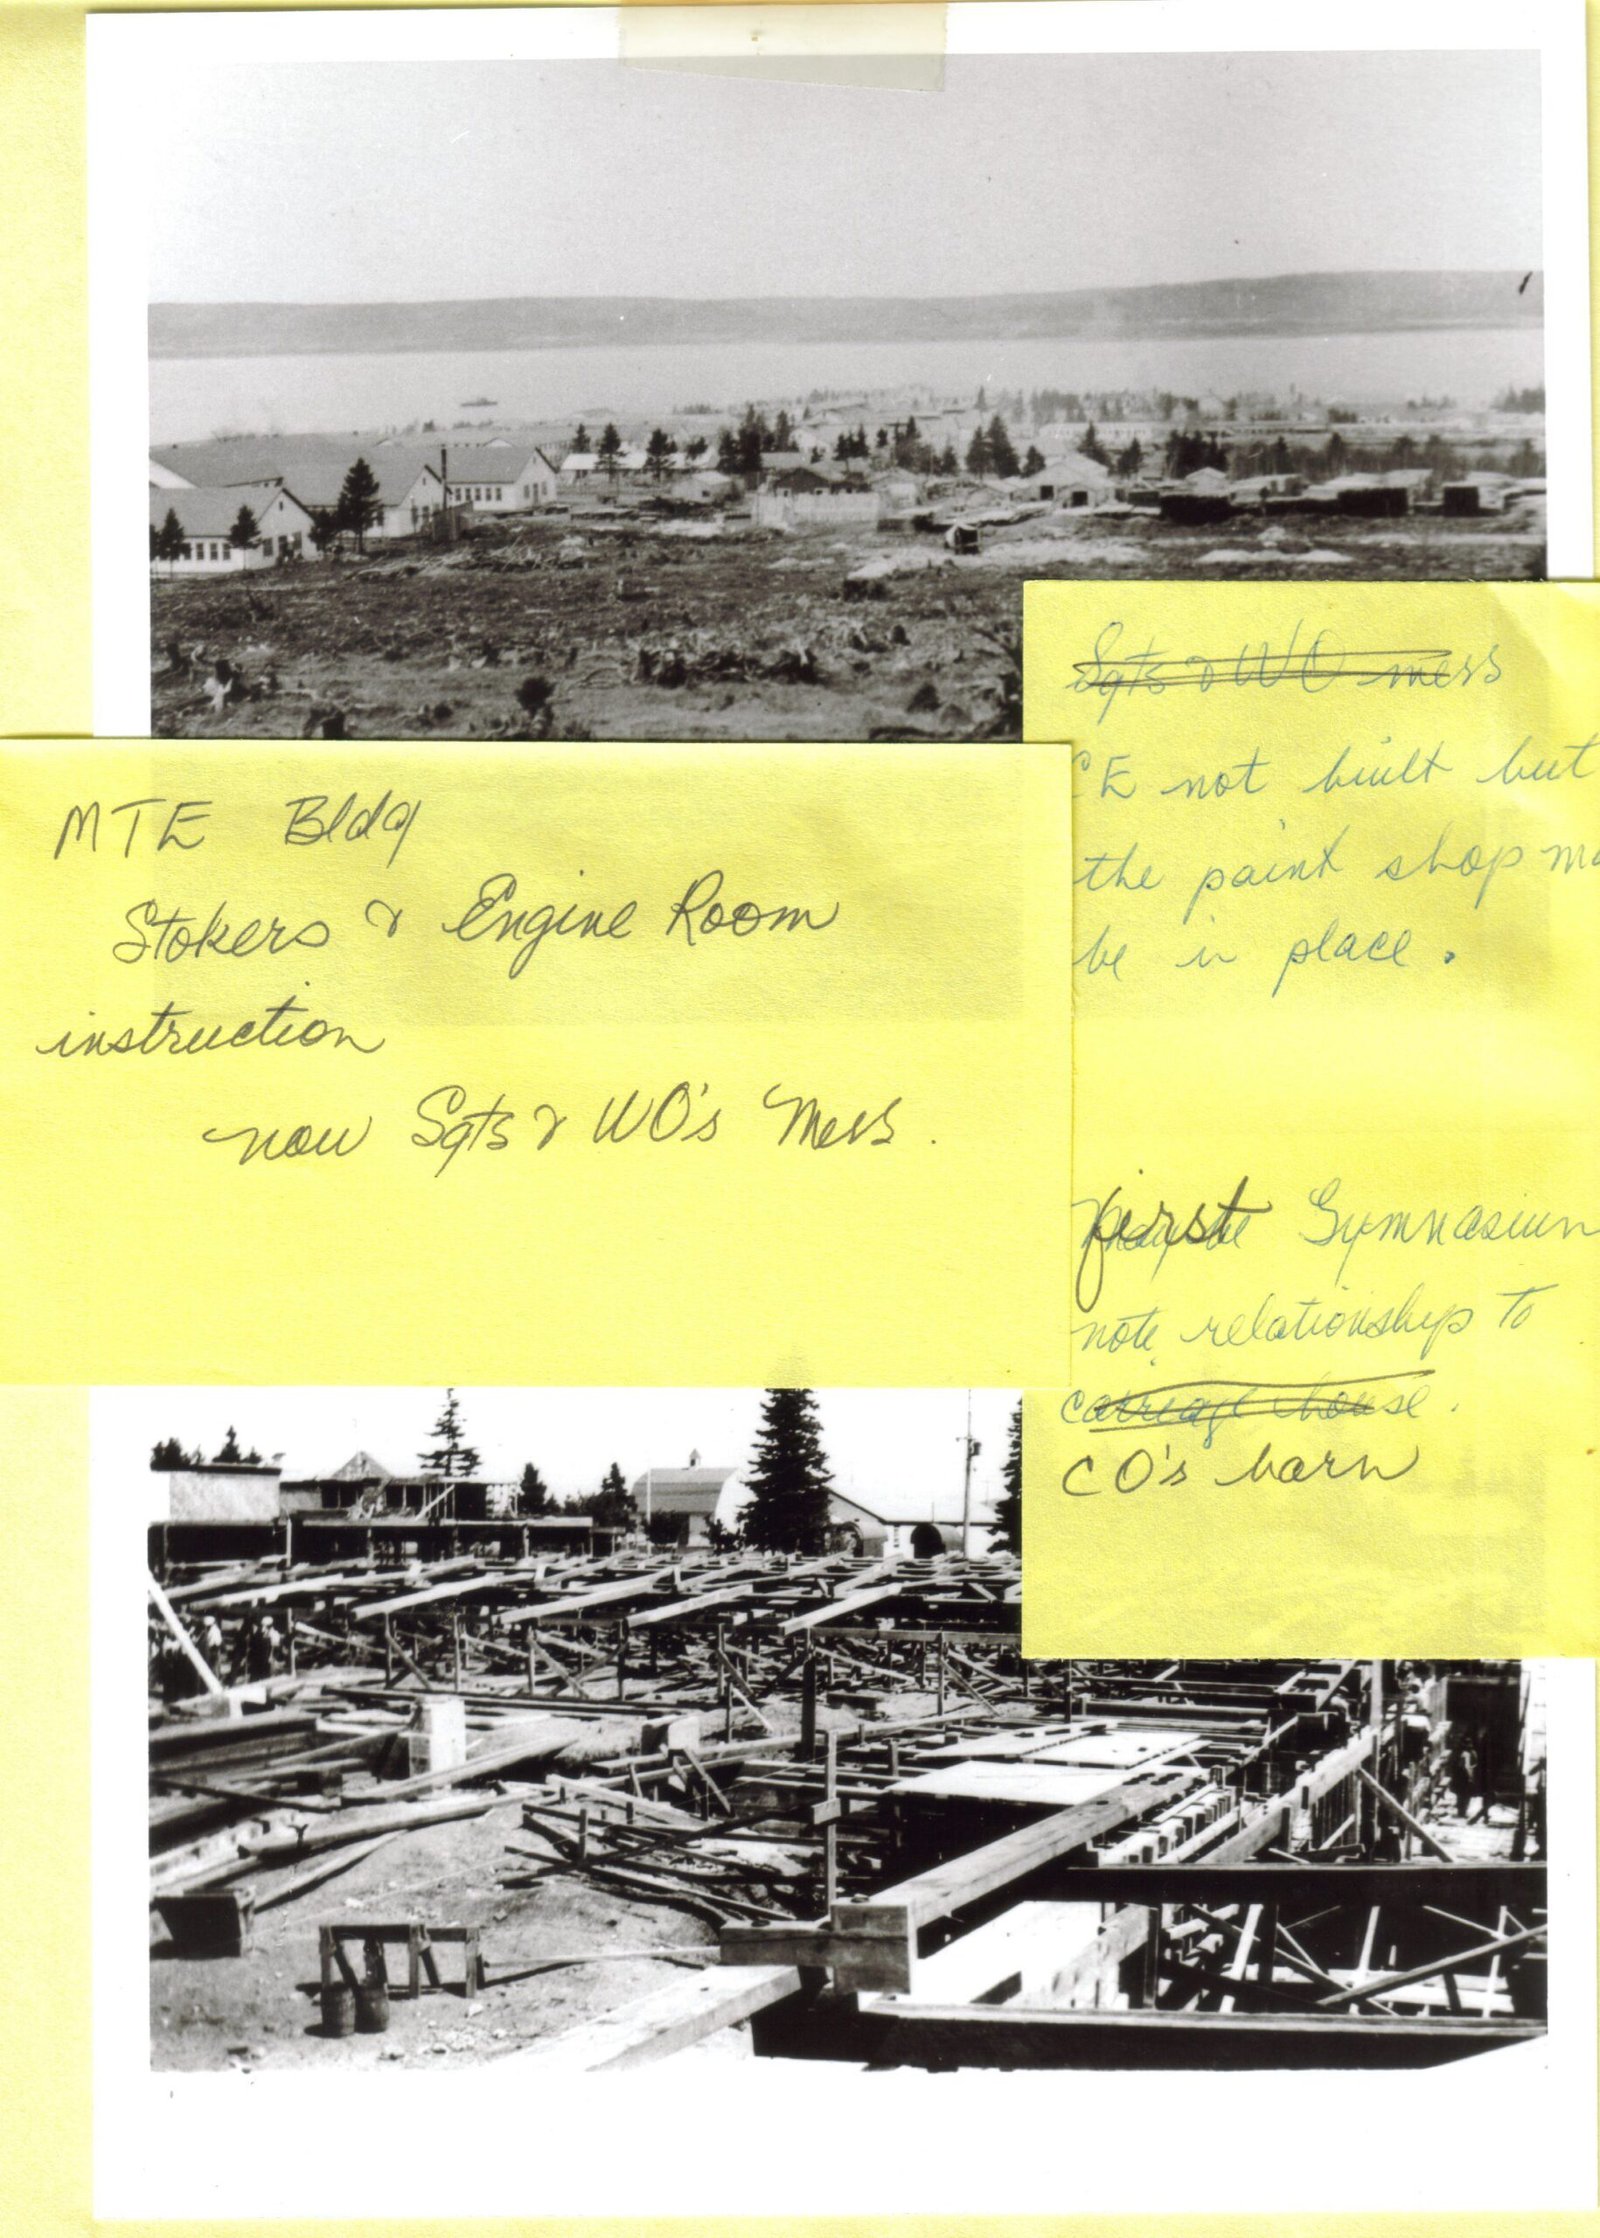 MTE Bldg
Stokers & Engine Room
instruction
now Sgts & WO's Mess.
Sgts & WO mess
CE not built but
the paint shop
be in place.
first Gymnasium
note relationship to
carriage house.
CO's barn